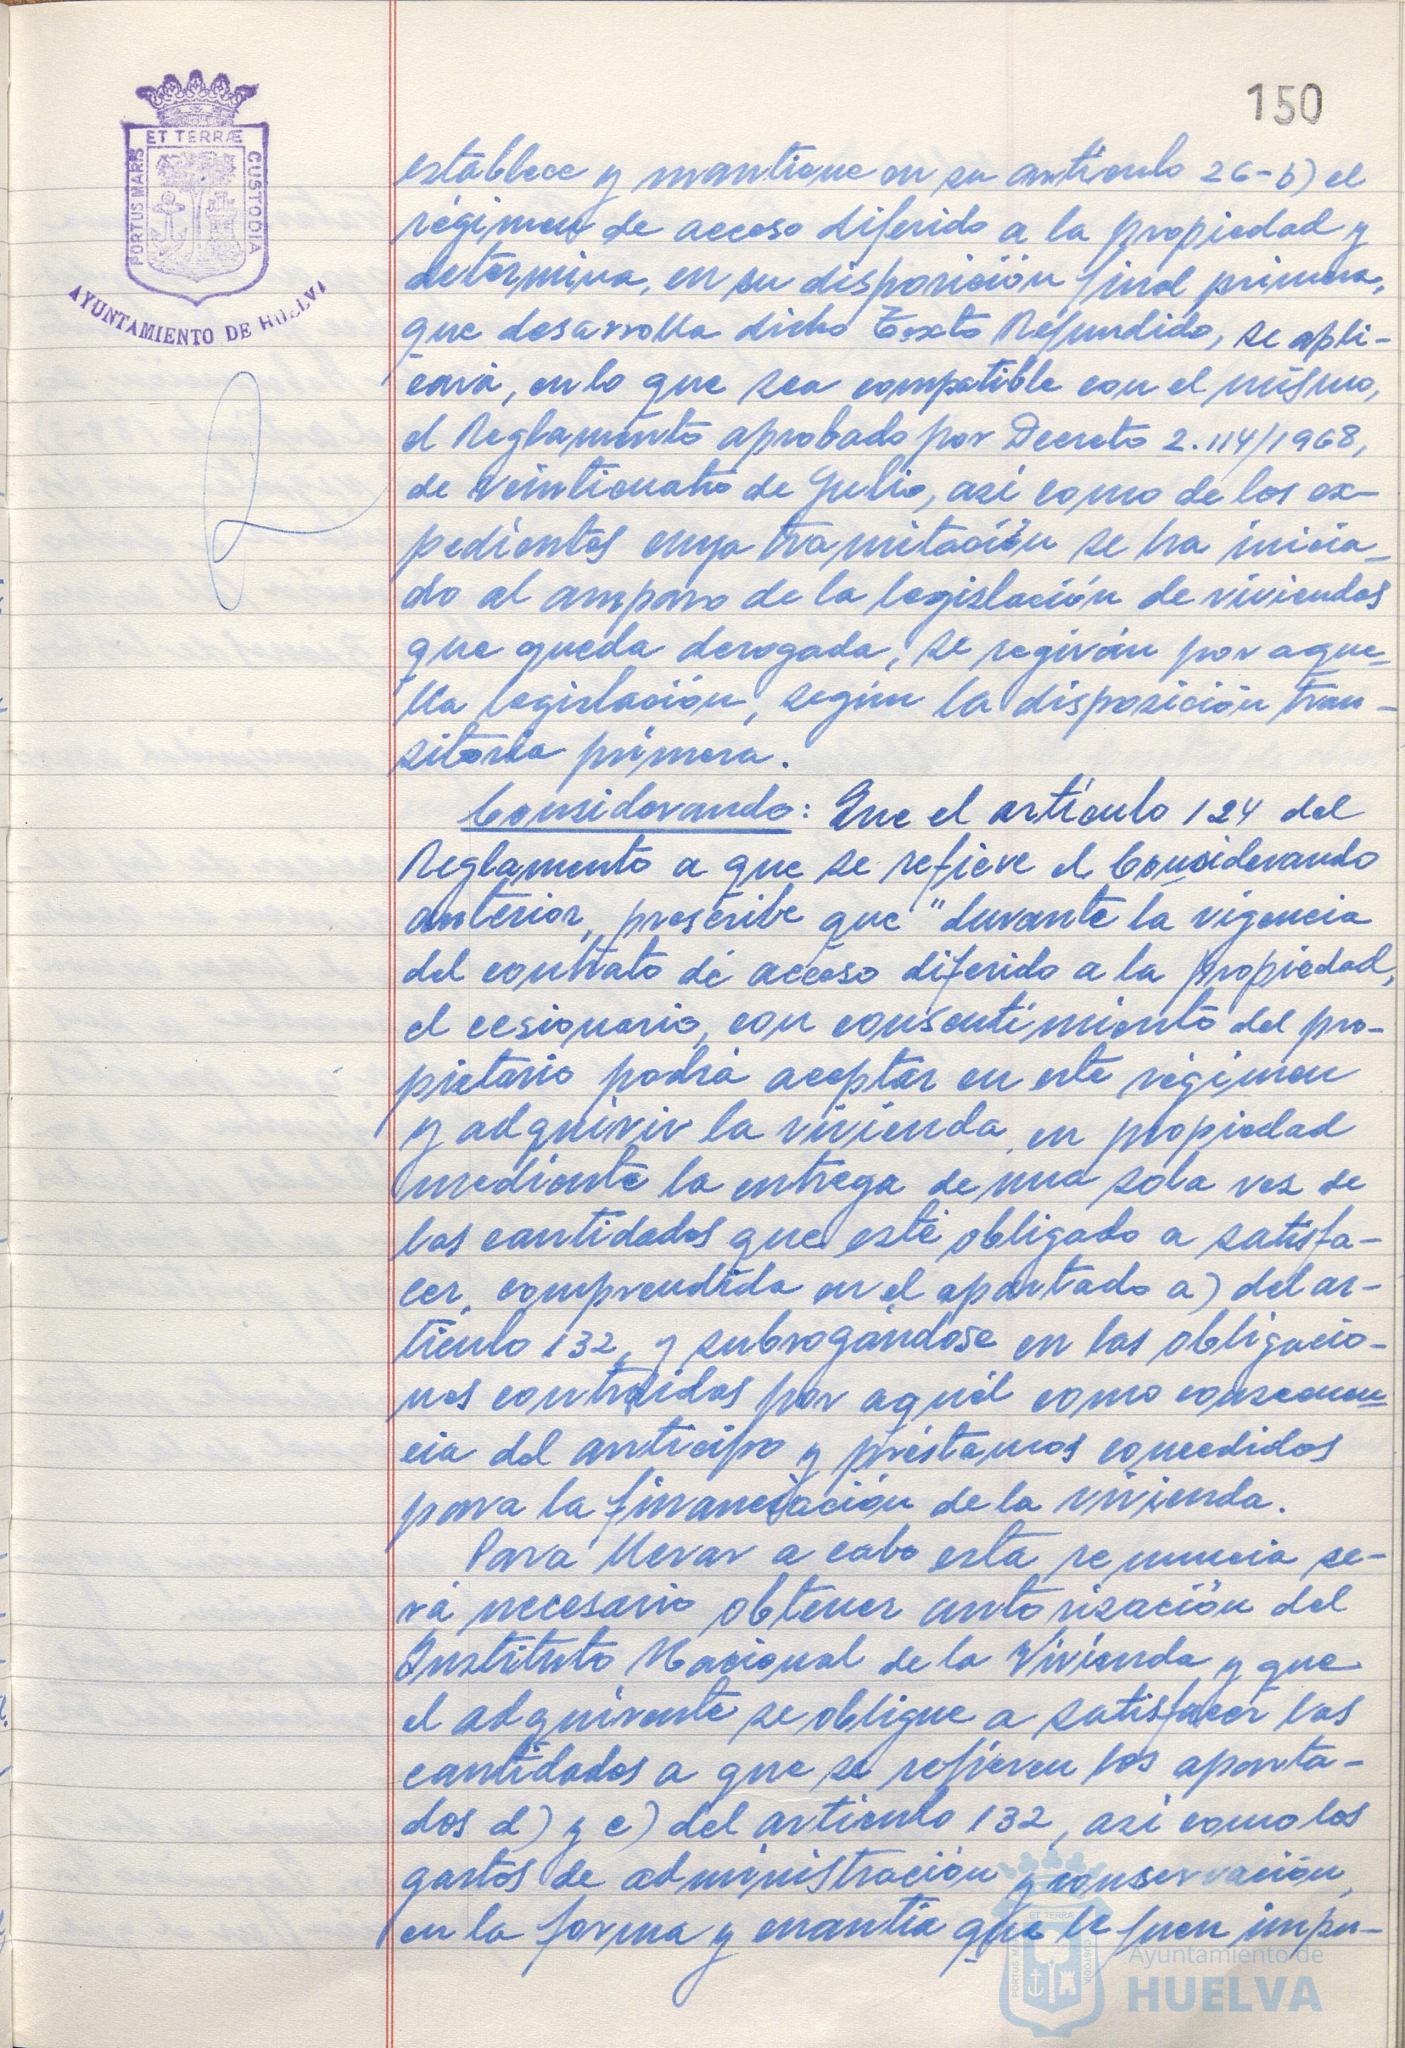 150
ET TERRÆ
PORTUS MARIS
CUSTODIA
AYUNTAMIENTO DE HUELVA
establece y mantiene en su artículo 26-b) el
régimen de acceso diferido a la propiedad y
determina, en su disposición final primera,
que desarrolla dicho Texto Refundido, se apli-
cará, en lo que sea compatible con el mismo,
el Reglamento aprobado por Decreto 2.114/1968,
de veinticuatro de Julio, así como de los ex-
pedientes cuya tramitación se ha inicia-
do al amparo de la legislación de viviendas
que queda derogada, se regirán por aque-
lla legislación, según la disposición tran-
sitoria primera.
Considerando: Que el artículo 124 del
Reglamento a que se refiere el Considerando
anterior, prescribe que "durante la vigencia
del contrato de acceso diferido a la propiedad,
el cesionario, con consentimiento del pro-
pietario podrá aceptar en este régimen
y adquirir la vivienda en propiedad
mediante la entrega de una sola vez de
las cantidades que esté obligado a satisfa-
cer, comprendida en el apartado a) del ar-
tículo 132, y subrogándose en las obligacio-
nes contraidas por aquél como consecuen-
cia del anticipo y préstamos concedidos
para la financiación de la vivienda.
Para llevar a cabo esta renuncia se-
rá necesario obtener autorización del
Instituto Nacional de la Vivienda y que
el adquirente se obligue a satisfacer las
cantidades a que se refieren los aparta-
dos d) y e) del artículo 132, así como los
gastos de administración y conservación,
en la forma y cuantía que le fuen impu-
ET TERRÆ
PORTUS MARIS
CUSTODIA
Ayuntamiento de
HUELVA